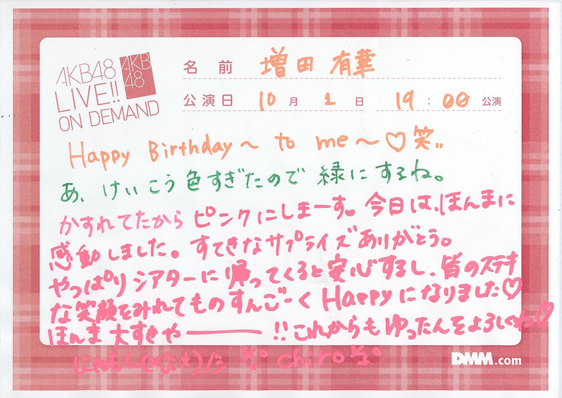 AKB48
LIVE!!
ON DEMAND
AKB
48
名前 増田 有華
公演日 10月1日 19:00公演
Happy Birthday〜 to me〜♡笑"
あ、けいこう色すぎたので 緑にするね。
かすれてたから ピンクにしまーす。今日は、ほんまに
感動しました。すてきなサプライズありがとう。
やっぱりシアターに帰ってくると安心するし、皆のステキ
な笑顔をみれてものすんごーくHappyになりました♡
ほんま 大すきやーーー!!これからもゆったんをよろしくね♡
chiro
DMM.com